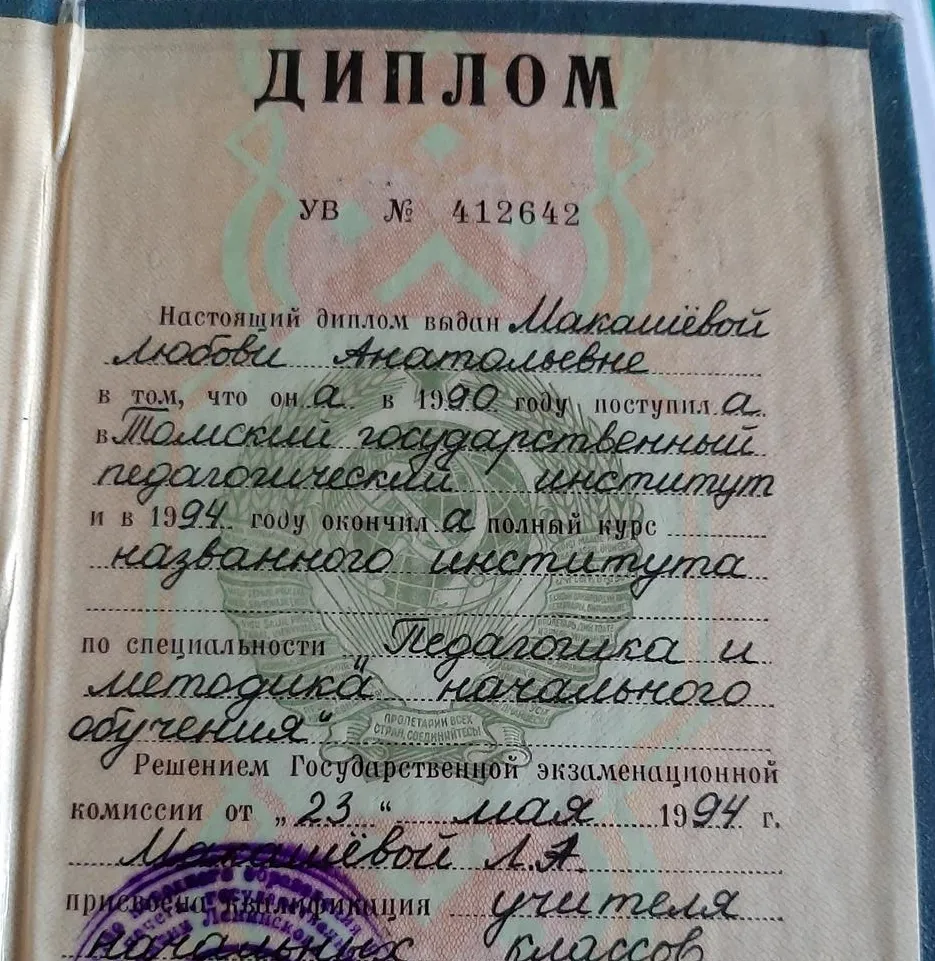 ДИПЛОМ
УВ № 412642
Настоящий диплом выдан Макашёвой
Любови Анатольевне
в том, что он а в 1990 году поступил а
в Томский государственный
педагогический институт
и в 1994 году окончил а полный курс
названного института
по специальности „Педагогика и
методика начального
обучения“
ПРОЛЕТАРИИ ВСЕХ
СТРАН, СОЕДИНЯЙТЕСЬ!
Решением Государственной экзаменационной
комиссии от „23“ мая 1994 г.
Макашёвой Л.А.
присвоена квалификация учителя
начальных классов